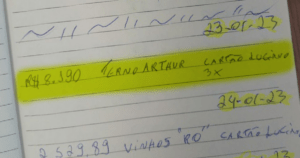 23-01-23
R$ 8.390 "CANO ARTHUR CARTÃO LUCIANO
3X
24-01-23
2.529.89 VINHOS "RO" CARTÃO